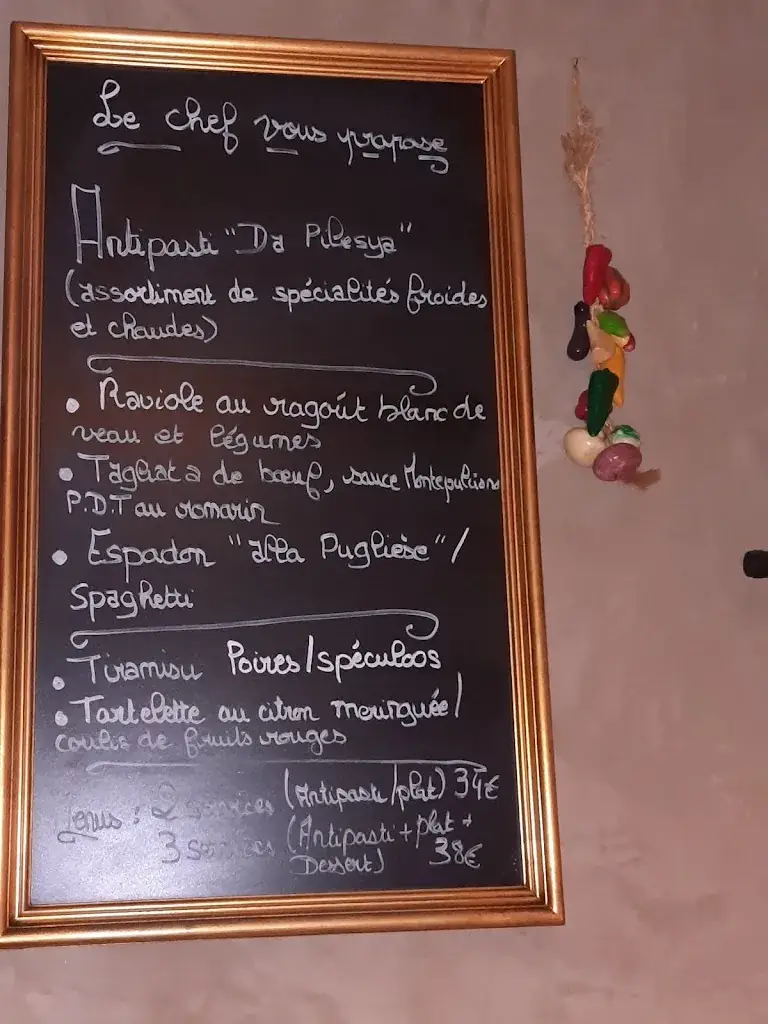 Le chef vous propose
Antipasti "Da Pilesya"
(assortiment de spécialités froides
et chaudes)
• Raviole au ragoût blanc de
veau et légumes
• Tagliata de bœuf, sauce Montepulciano
P.D.T au romarin
• Espadon "alla Pugliese" /
Spaghetti
• Tiramisu Poires/spéculoos
• Tartelette au citron meringuée/
coulis de fruits rouges
Menus : 2 services (Antipasti/plat) 34€
3 services (Antipasti+plat+
Dessert) 38€